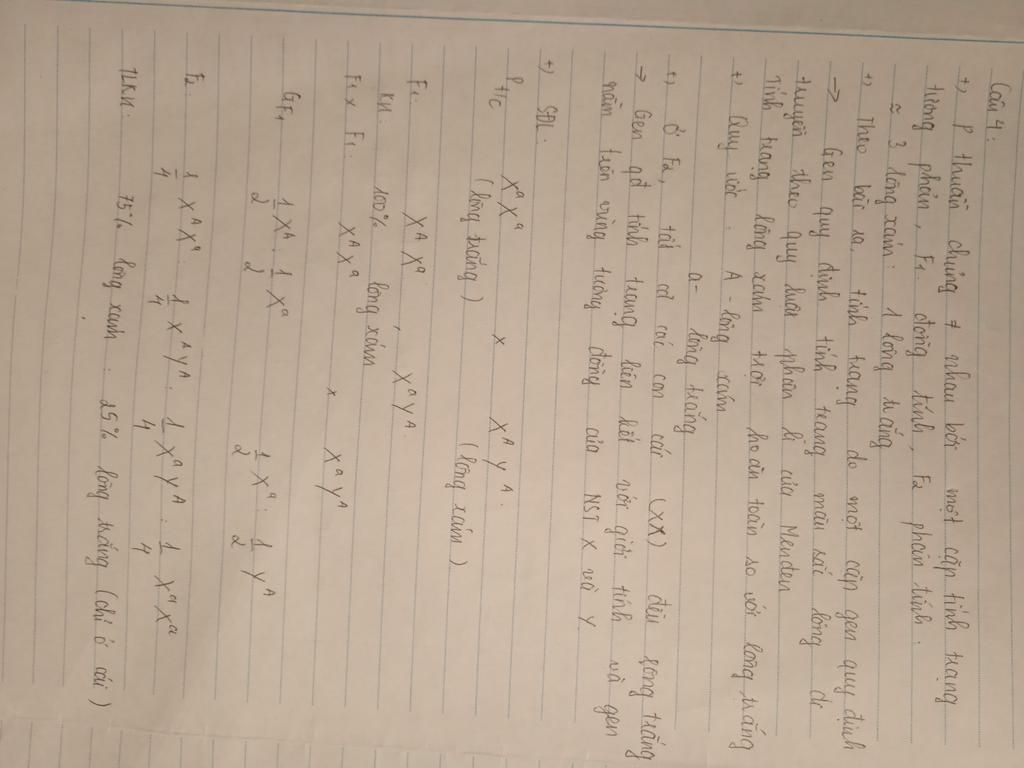 Câu 4:
+) P thuần chủng ≠ nhau bởi một cặp tính trạng
tương phản, F1 đồng tính, F2 phân tính.
≈ 3 lông xám : 1 lông trắng
+) Theo bài ra, tính trạng do một cặp gen quy định
→ Gen quy định tính trạng màu sắc lông di
truyền theo quy luật phân li của Menđen
Tính trạng lông xám trội hoàn toàn so với lông trắng
+) Quy ước: A - lông xám
a - lông trắng
+) Ở F2, tất cả các con cái (XX) đều lông trắng
→ Gen qđ tính trạng liên kết với giới tính và gen
nằm trên vùng tương đồng của NST X và Y
+) SĐL:
Pt/c X^a X^a x X^A Y^A
(lông trắng) (lông xám)
F1: X^A X^a , X^a Y^A.
KH: 100% lông xám
F1 x F1: X^A X^a x X^a Y^A
G_F1 1/2 X^A : 1/2 X^a 1/2 X^a : 1/2 Y^A
F2: 1/4 X^A X^a : 1/4 X^A Y^A : 1/4 X^a Y^A : 1/4 X^a X^a
TLKH: 75% lông xám : 25% lông trắng (chỉ ở cái)